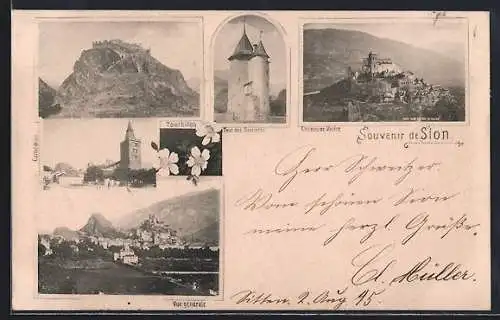 Tourbillon
Tour des Sorciers
Château de Valère
Souvenir de Sion
Cathédrale
Herr Schweitzer.
Vom schönen Sion
meine herzl. Grüße.
Cl. Müller.
Sitten 2 Aug 95.
Vue générale